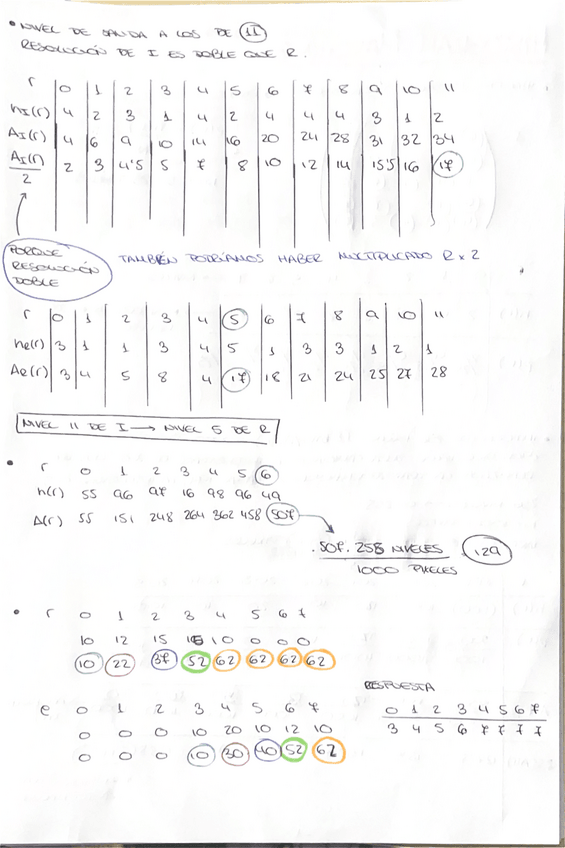 • NIVEL DE SALIDA A LOS DE 11
RESOLUCIÓN DE I ES DOBLE QUE R.
r 0 1 2 3 4 5 6 7 8 9 10 11
hI(r) 4 2 3 1 4 2 4 4 4 3 1 2
AI(r) 4 6 9 10 14 16 20 24 28 31 32 34
AI(r)/2 2 3 4'5 5 7 8 10 12 14 15'5 16 17
PORQUE
RESOLUCIÓN
DOBLE
TAMBIÉN PODRÍAMOS HABER MULTIPLICADO R x 2
r 0 1 2 3 4 5 6 7 8 9 10 11
he(r) 3 1 1 3 4 5 1 3 3 1 2 1
Ae(r) 3 4 5 8 4 17 18 21 24 25 27 28
NIVEL 11 DE I → NIVEL 5 DE R
• r 0 1 2 3 4 5 6
h(r) 55 96 97 16 98 96 49
A(r) 55 151 248 264 362 458 507
. 507. 258 NIVELES 129
1000 PIXELES
• r 0 1 2 3 4 5 6 7
10 12 15 15 10 0 0 0
10 22 37 52 62 62 62 62
RESPUESTA
e 0 1 2 3 4 5 6 7
0 1 2 3 4 5 6 7
0 0 0 10 20 10 12 10
3 4 5 6 7 7 7 7
0 0 0 10 30 40 52 62